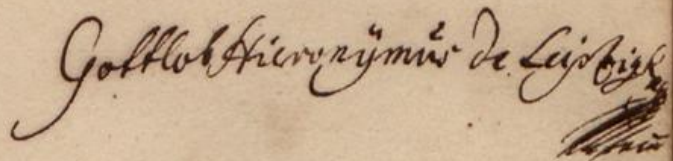 Gottlob Hieronÿmus de Leipzigk